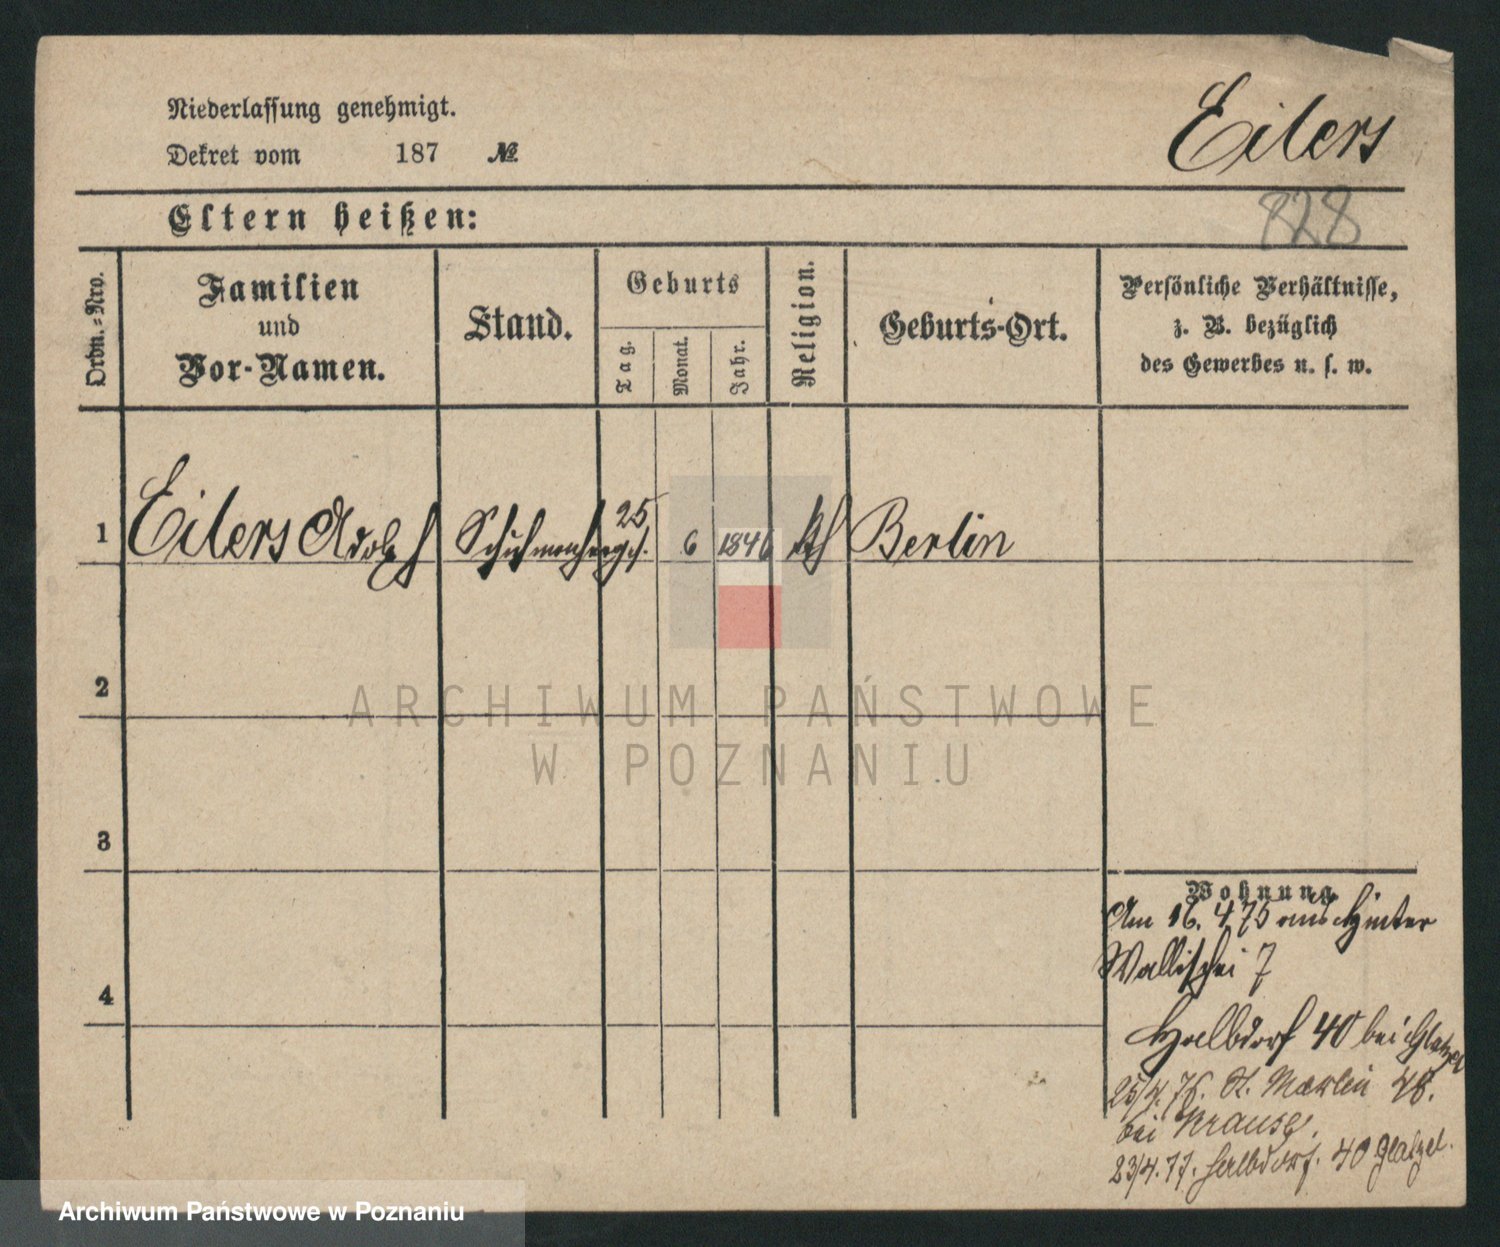 Niederlassung genehmigt.
Dekret vom 187 №
Eilers
828
Eltern heißen:
Ordn.-Nro.
Familien
und
Vor-Namen.
Stand.
Geburts
Tag.
Monat.
Jahr.
Religion.
Geburts-Ort.
Persönliche Verhältnisse,
z. B. bezüglich
des Gewerbes u. s. w.
1 Eilers Adolph 25 6 1846 Berlin
2
3
4
Wohnung
Am 16. 4 75 aus Hinter
Wallischei 7
Halbdorf 40 bei Glatzel
25/4. 76. St. Martin 48.
bei Krause.
23/4. 77. Halbdorf. 40 Glatzel.
ARCHIWUM PAŃSTWOWE
W POZNANIU
Archiwum Państwowe w Poznaniu